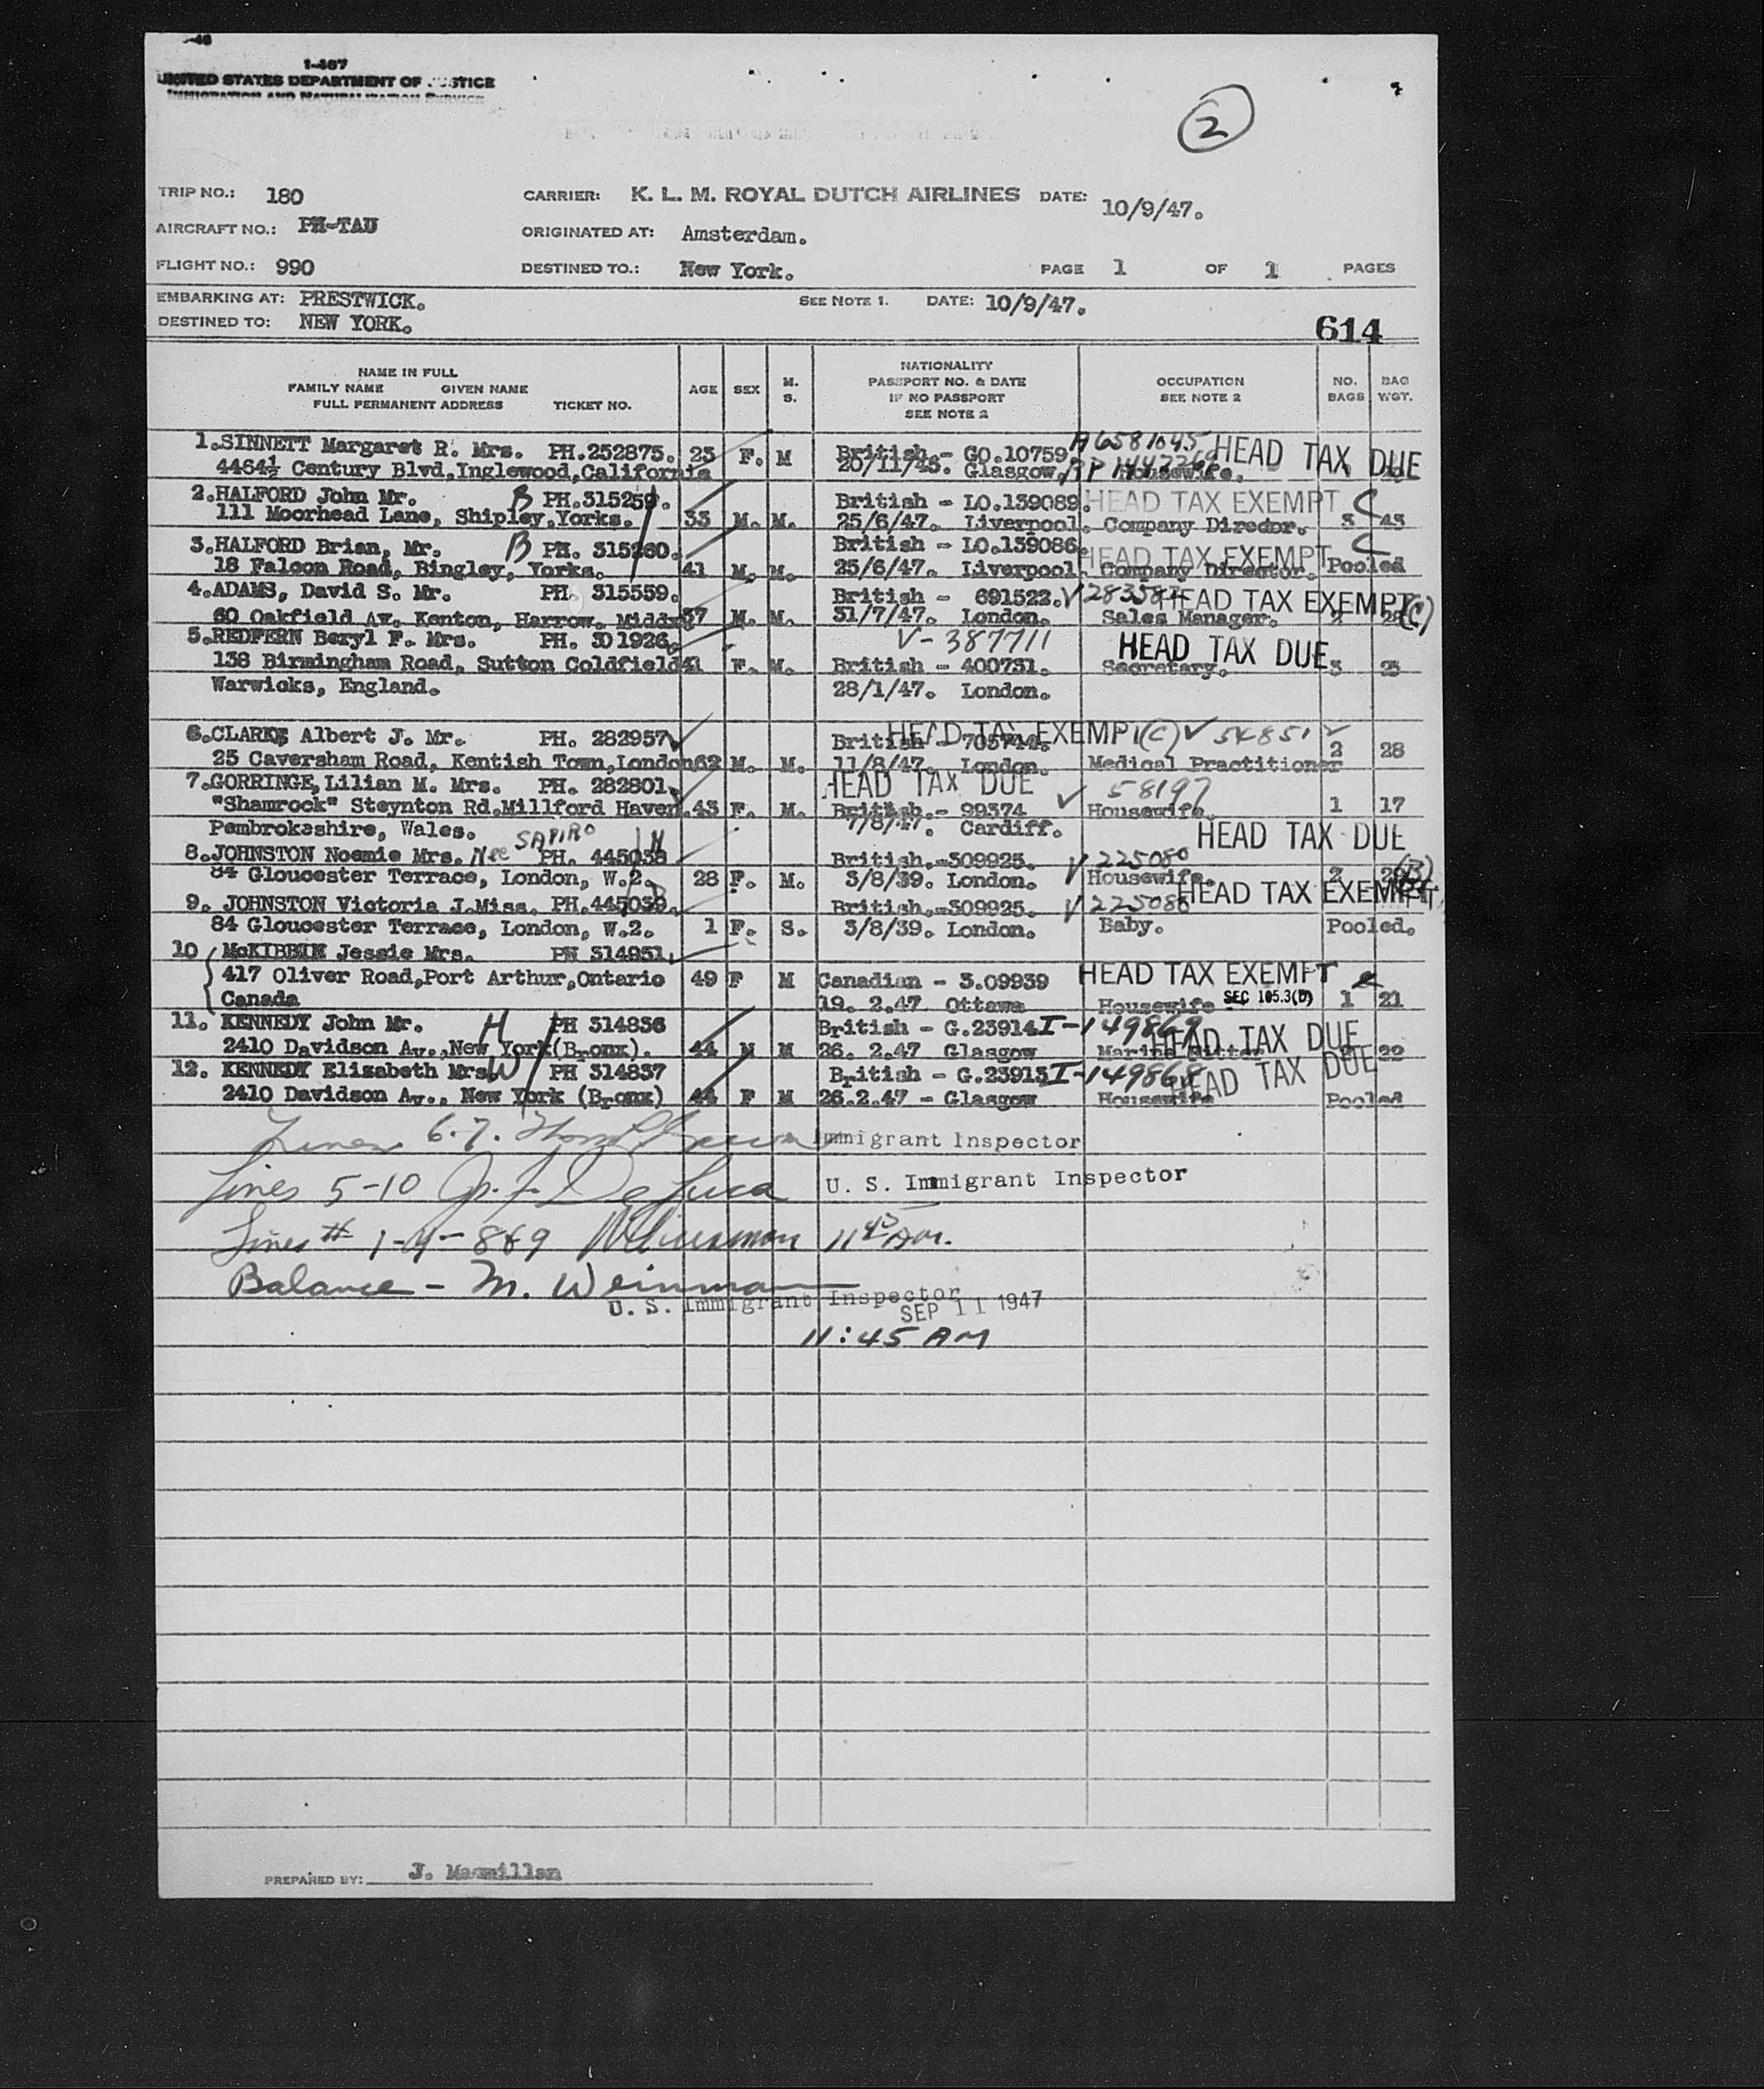 1-467
UNITED STATES DEPARTMENT OF JUSTICE
IMMIGRATION AND NATURALIZATION SERVICE
2
TRIP NO.: 180 CARRIER: K. L. M. ROYAL DUTCH AIRLINES DATE: 10/9/47.
AIRCRAFT NO.: PH-TAU ORIGINATED AT: Amsterdam.
FLIGHT NO.: 990 DESTINED TO.: New York. PAGE 1 OF 1 PAGES
EMBARKING AT: PRESTWICK. SEE NOTE 1. DATE: 10/9/47.
DESTINED TO: NEW YORK.
614
NAME IN FULL
FAMILY NAME GIVEN NAME
FULL PERMANENT ADDRESS TICKET NO. AGE SEX M. S. NATIONALITY PASSPORT NO. & DATE IF NO PASSPORT SEE NOTE 2 OCCUPATION SEE NOTE 2 NO. BAGS BAG WGT.
1.SINNETT Margaret R. Mrs. PH.252875. 23 F. M British - GO.10759 A6581045 HEAD TAX DUE
4464½ Century Blvd,Inglewood,California 20/11/45. Glasgow, Housewife.
2.HALFORD John Mr. B PH.315259. British - LO.139089. HEAD TAX EXEMPT C
111 Moorhead Lane, Shipley,Yorks. 33 M. M. 25/6/47. Liverpool. Company Director. 3 43
3.HALFORD Brian, Mr. B PH. 315260. British - LO.139086 HEAD TAX EXEMPT C
18 Falcon Road, Bingley, Yorks. 41 M. M. 25/6/47. Liverpool. Company Director. Pooled
4.ADAMS, David S. Mr. PH. 315559. British - 691522. HEAD TAX EXEMPT (C)
60 Oakfield Av. Kenton, Harrow. Middx 37 M. M. 31/7/47. London. Sales Manager. 2 28
5.REDFERN Beryl F. Mrs. PH. 301926. V-387711 HEAD TAX DUE
138 Birmingham Road, Sutton Coldfield 41 F. M. British - 400731. Secretary. 3 25
Warwicks, England. 28/1/47. London.
6.CLARKE Albert J. Mr. PH. 282957 British - 705744. HEAD TAX EXEMPT (C) V 54851
25 Caversham Road, Kentish Town,London 62 M. M. 11/8/47. London. Medical Practitioner 2 28
7.GORRINGE,Lilian M. Mrs. PH. 282801. HEAD TAX DUE V 58197
"Shamrock" Steynton Rd.Millford Haven. 43 F. M. British.- 99374 Housewife. 1 17
Pembrokeshire, Wales. 7/8/47. Cardiff. HEAD TAX DUE
8.JOHNSTON Noemie Mrs. Nee SAPIRO PH. 445038 British.-309925. V 225080
84 Gloucester Terrace, London, W.2. 28 F. M. 3/8/39. London. Housewife. 2
9. JOHNSTON Victoria J.Miss. PH.445039. British.-309925. V 225086 HEAD TAX EXEMPT
84 Gloucester Terrace, London, W.2. 1 F. S. 3/8/39. London. Baby. Pooled.
10 McKIBBIN Jessie Mrs. PH 314951.
417 Oliver Road,Port Arthur,Ontario 49 F M Canadian - 3.09939 HEAD TAX EXEMPT
Canada 19. 2.47 Ottawa Housewife SEC 105.3(b) 1 21
11. KENNEDY John Mr. H PH 314836 British - G.23914 I-149869 HEAD TAX DUE
2410 Davidson Av.,New York(Bronx). 44 M M 26. 2.47 Glasgow Marine Fitter 22
12. KENNEDY Elizabeth Mrs W PH 314837 British - G.23913 I-149868 HEAD TAX DUE
2410 Davidson Av., New York (Bronx) 44 F M 26.2.47 - Glasgow Housewife Pooled
Lines 6-7. Immigrant Inspector
Lines 5-10 U. S. Immigrant Inspector
Lines # 1-4-8&9 11 45 AM.
Balance - M. Weinman
U. S. Immigrant Inspector
SEP 11 1947
11:45 AM
PREPARED BY: J. Macmillan